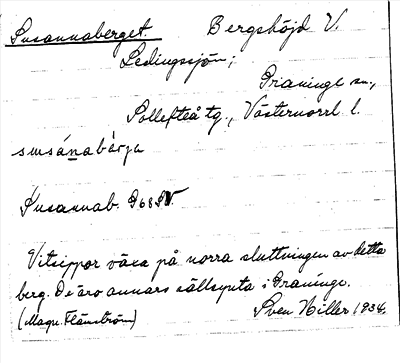 Susannaberget. Bergshöjd V.
Ledingssjön;
Graninge sn.,
Sollefteå tg., Västernorrl. l.
susánabärja
Susannab. 968 SV
Vitsippor växa på norra sluttningen av detta
berg. De äro annars sällsynta i Graninge.
(Magn. Flänström) Sven Hiller 1934.